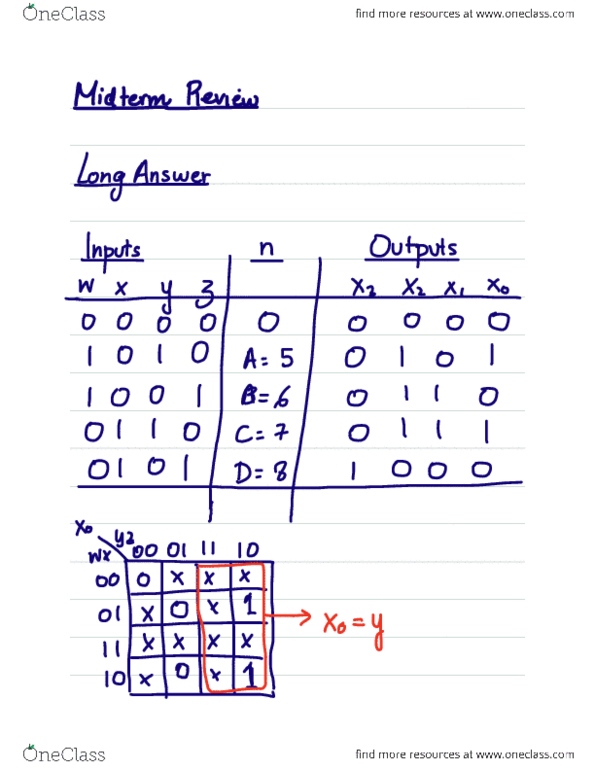 OneClass find more resources at www.oneclass.com
Midterm Review
Long Answer
Inputs n Outputs
W x y z X2 X2 X1 X0
0 0 0 0 0 0 0 0 0
1 0 1 0 A = 5 0 1 0 1
1 0 0 1 B = 6 0 1 1 0
0 1 1 0 C = 7 0 1 1 1
0 1 0 1 D = 8 1 0 0 0
X0 yz
wx 00 01 11 10
00 0 x x x
01 x 0 x 1 → X0 = y
11 x x x x
10 x 0 x 1
OneClass find more resources at www.oneclass.com